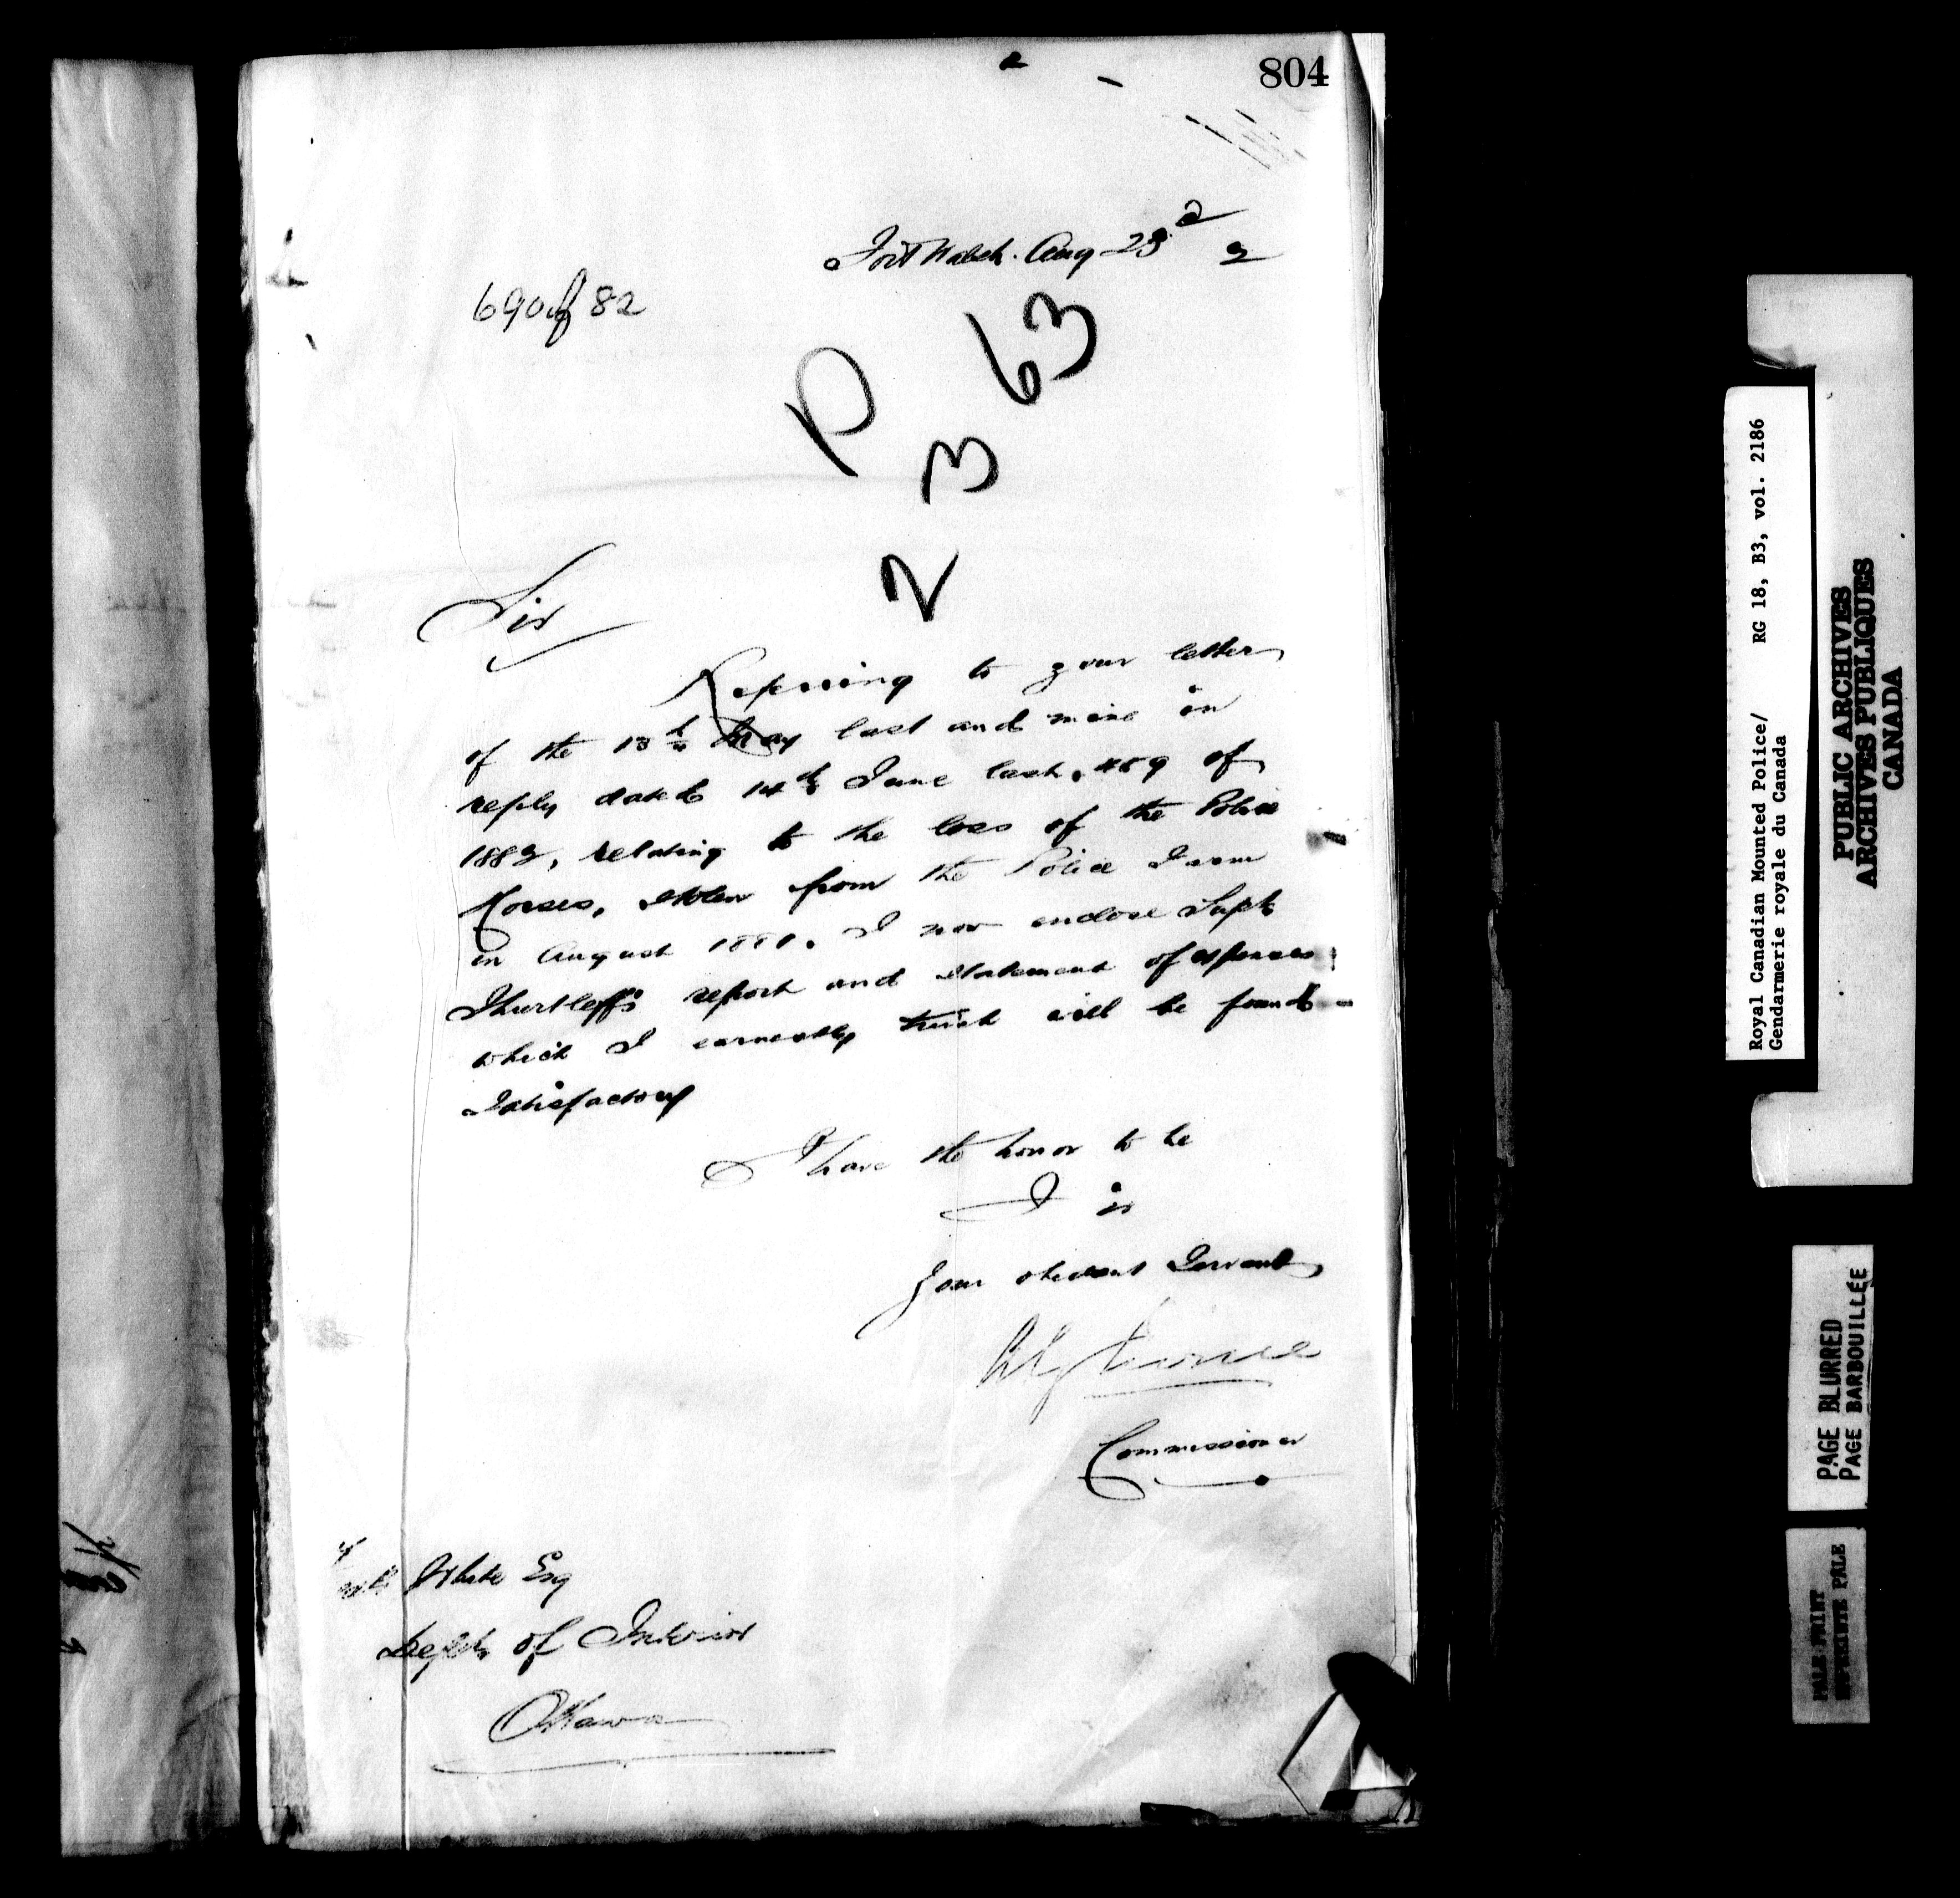 804
Fort Walsh. Aug 23d 2
690 of 82
P
2 3 63
Sir
Referring to your letter
of the 13th May last and mine in
reply dated 14th June last, 459 of
1882, relating to the loss of the Police
Horses, stolen from the Police Farm
in August 1881. I now enclose Supt
Shurtleff's report and statement of expenses
which I earnestly trust will be found
Satisfactory
I have the honor to be
Sir
Your obedient Servant
Commissioner
White Esq
Dept of Interior
Ottawa
Royal Canadian Mounted Police/ RG 18, B3, vol. 2186
Gendarmerie royale du Canada
PUBLIC ARCHIVES
ARCHIVES PUBLIQUES
CANADA
PAGE BLURRED
PAGE BARBOUILLÉE
PALE PRINT
IMPRIMÉE PALE